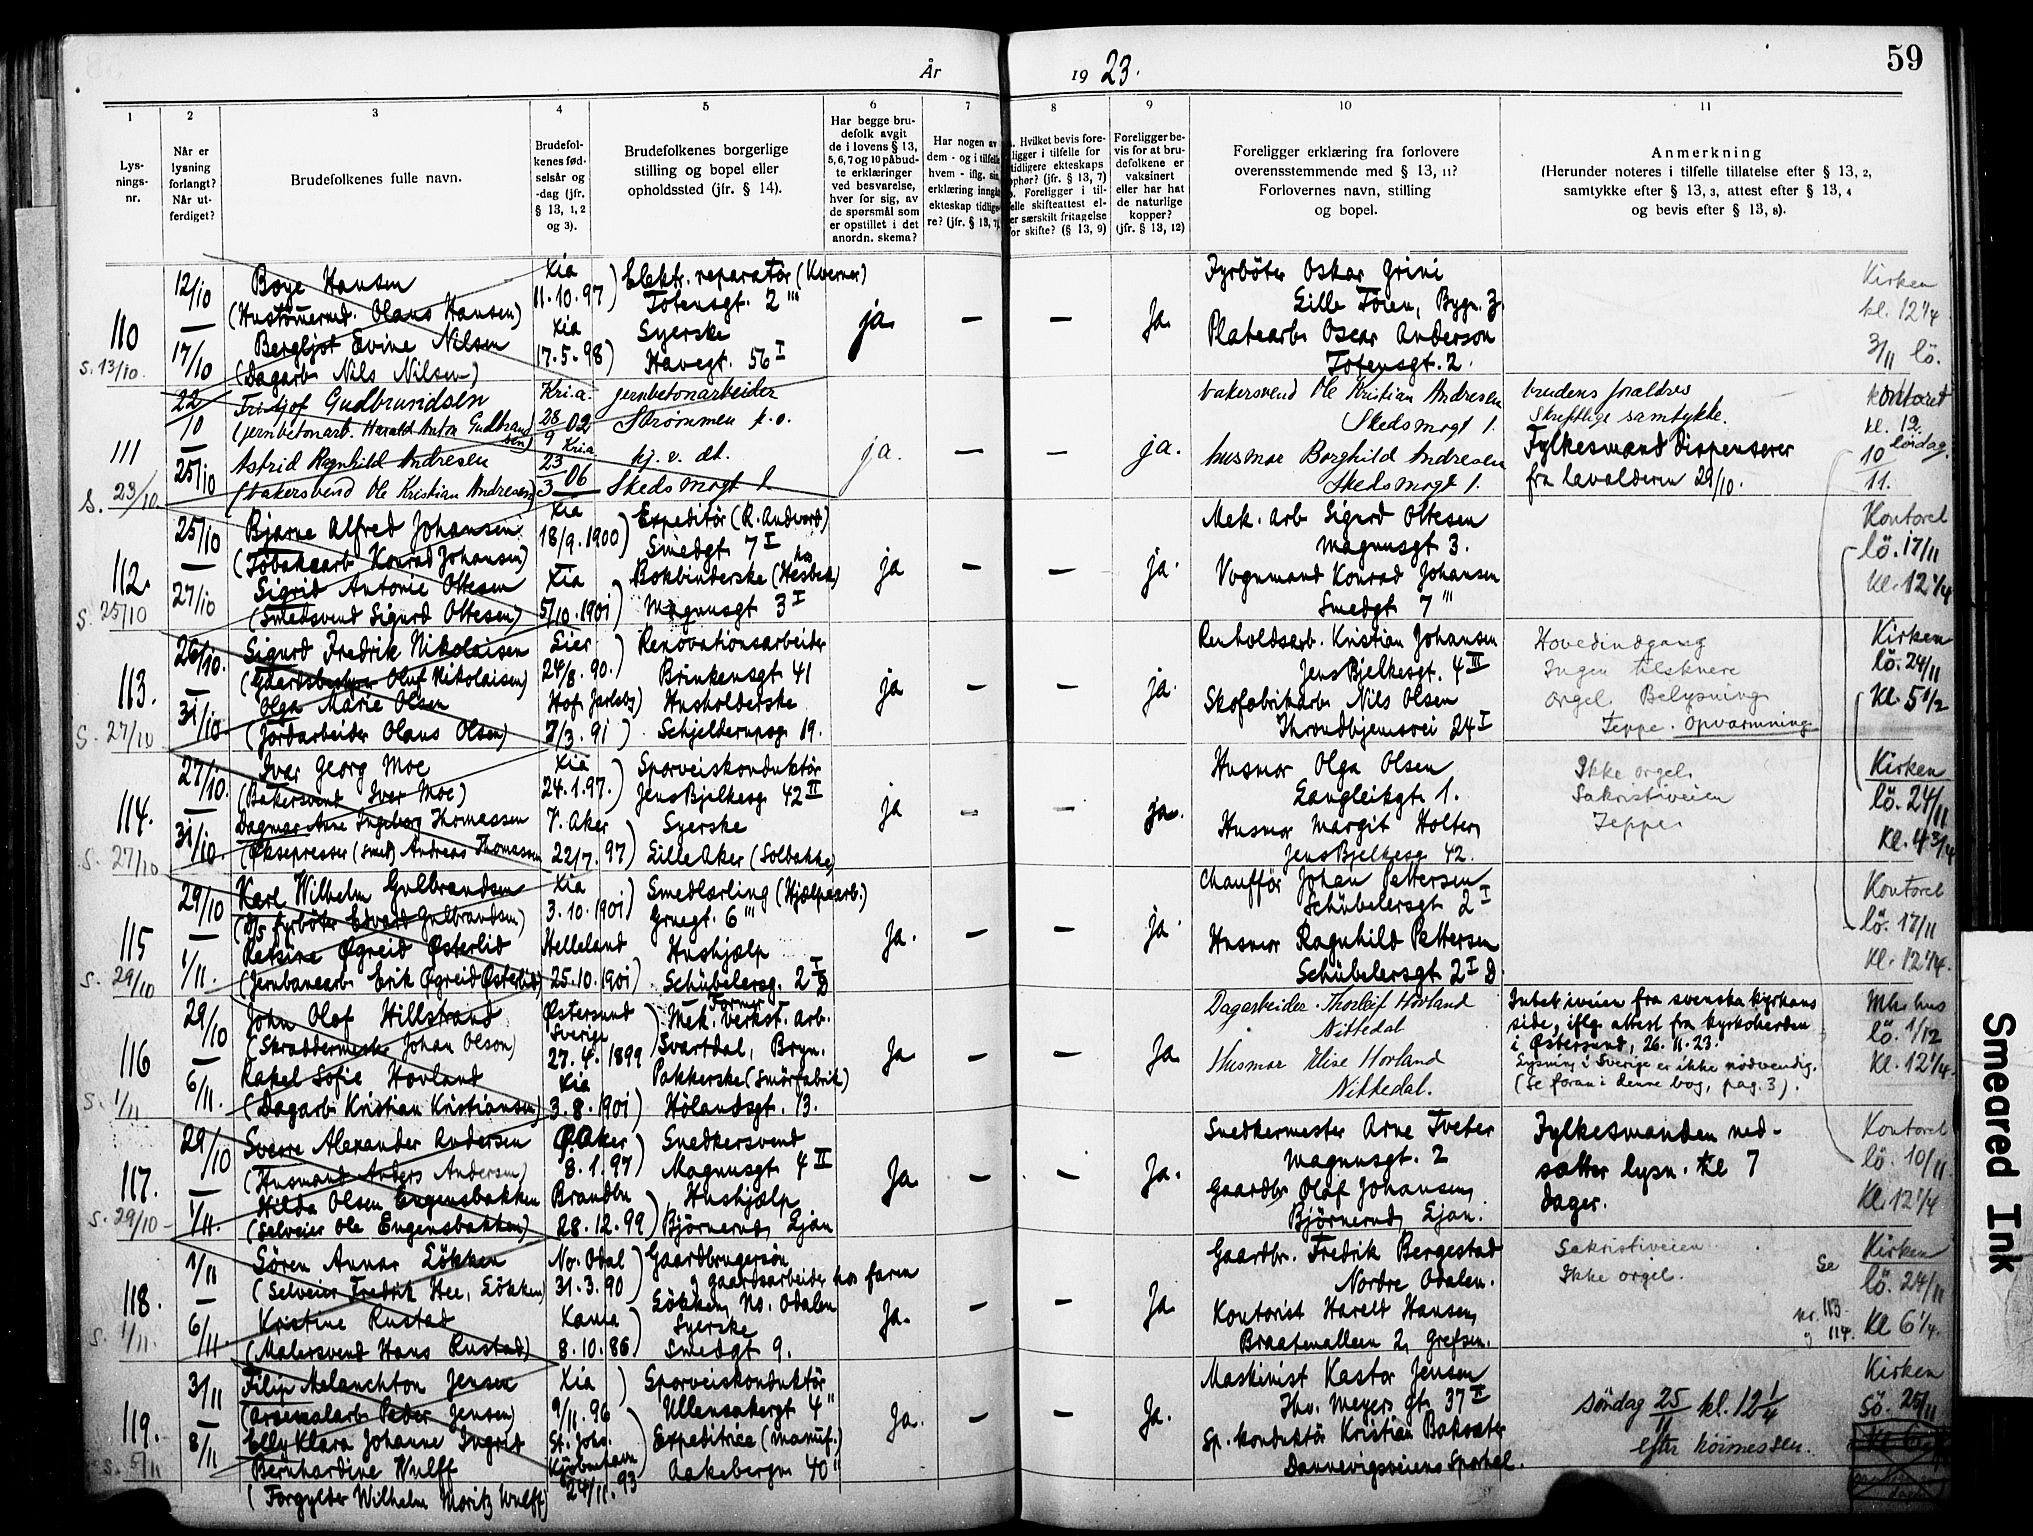 År 1923.
59
1
2
3
4
5
6
7
8
9
10
11
Lys-
nings-
nr.
Når er
lysning
forlangt?
Når ut-
ferdiget?
Brudefolkenes fulle navn.
Brudefol-
kenes fød-
selsår og
-dag (jfr.
§ 13, 1, 2
og 3).
Brudefolkenes borgerlige
stilling og bopel eller
opholdssted (jfr. § 14).
Har begge bru-
defolk avgit
de i lovens § 13,
5, 6, 7 og 10 påbud-
te erklæringer
ved besvarelse,
hver for sig, av
de spørsmål som
er opstillet i det
anordn. skema?
Har nogen av
dem - og i tilfelle
hvem - iflg. sin
erklæring inngått
ekteskap tidlige-
re? (jfr. § 13, 7)
Hvilket bevis fore-
ligger i tilfelle for
tidligere ekteskaps
ophør? (jfr. § 13, 7)
Foreligger i til-
felle skifteattest el-
er særskilt fritagelse
for skifte? (§ 13, 9)
Foreligger be-
vis for at bru-
defolkene er
vaksinert
eller har hat
de naturlige
kopper?
(jfr. § 13, 12)
Foreligger erklæring fra forlovere
overensstemmende med § 13, 11?
Forlovernes navn, stilling
og bopel.
Anmerkning
(Herunder noteres i tilfelle tillatelse efter § 13, 2,
samtykke efter § 13, 3, attest efter § 13, 4
og bevis efter § 13, 8).
110
S. 13/10.
12/10
17/10
Boye Hansen
Olaus Hansen)
Bergljot Evine Nilsen
(Dagarb. Nils Nilsen)
Xia
11.10.97)
Xia
17.5.98)
Elektr. reparatör (Kverner)
Totensgt. 2'''
Syerske
Havegt. 56 I
ja.
—
—
Ja.
Fyrböter Oskar Grini
Lille Töien, Bygn. 3.
Platearb. Oscar Anderson
Totensgt. 2.
Kirken
kl. 12 1/4
3/11 lö.
111
S. 23/10.
22/10
25/10
Fritjof Gudbrandsen
(jernbetonarb. Harald Anton Gudbrandsen)
Astrid Ragnhild Andresen
(bakersvend Ole Kristian Andresen)
Kri.a.
28/9 02
Kria
23/3 06
jernbetonarbeider
Strømmen p.o.
hj. v. dt.
Skedsmogt 1.
ja.
—
—
ja.
bakersvend Ole Kristian Andresen
Skedsmogt 1.
husmor Borghild Andresen
Skedsmogt 1.
brudens foreldres
skriftlige samtykke.
Fylkesmand dispenserer
fra lavalderen 29/10.
kontoret
kl. 12
lørdag.
10
11.
112.
S. 25/10
25/10
27/10
Bjarne Alfred Johansen
(Tobakarb. Konrad Johansen)
Sigrid Antonie Ottesen
(Smedsvend Sigurd Ottesen)
Xia
18/9.1900)
Xia
5/10.1901)
Expeditör (R. Andvord)
Smedgt. 7 I
Bokbinderske (hos Hesbek)
Magnusgt 3 I
ja
—
—
ja.
Mek. arb. Sigurd Ottesen
Magnusgt 3.
Vognmand Konrad Johansen
Smedgt. 7'''
Kontoret
lö. 17/11
kl. 12 1/4
113.
S. 27/10
26/10.
31/10.
Sigurd Fredrik Nikolaisen
(Gaardsbestyrer Oluf Nikolaisen)
Olga Marie Olsen
(Jordarbeider Olaus Olsen)
Lier
24/8.90.)
Hof, Jarlsbg)
7/3.91)
Renovationsarbeider
Brinkensgt. 41
Husholderske
Schjelderupsg. 19.
ja
—
—
ja.
Renholdsarb. Kristian Johansen
Jens Bjelkesgt. 4 III
Skofabrikarb. Nils Olsen
Throndhjemsvei 24 I
Hovedindgang
Ingen tilskuere
Orgel. Belysning
Teppe. Opvarmning
Kirken
lö. 24/11
Kl. 5 1/2
114.
S. 27/10
27/10.
31/10.
Ivar Georg Moe
(Bakersvend Iver Moe)
Dagmar Anne Ingeborg Thomassen
(Øksepresser (smed) Andreas Thomassen
Xia
24.1.97.)
V. Aker
22/7.97)
Sporveiskonduktör
Jens Bjelkesg. 42 II
Syerske
Lille Aker (Solbakke)
ja
—
—
ja.
Husmor Olga Olsen
Langleikgt. 1.
Husmor Margit Holter,
Jens Bjelkesg. 42.
Ikke orgel.
Sakristiveien
Teppe
Kirken
lö. 24/11
Kl. 4 3/4
115
S. 29/10
29/10
1/11.
Karl Wilhelm Gulbrandsen
(D/S fyrböter Edvard Gulbrandsen)
Øgreid Østerlid
(Jernbanearb. Erik Øgreid Østerlid)
Xia
3.10.1901)
Helleland
25.10.1901)
Smedlærling (Hjælpearb.)
Gruegt. 6'''
Hushjælp
Schübelersg. 2 I D
Ja.
—
—
ja.
Chafför Johan Pettersen
Schübelersgt 2 I
Husmor Ragnhild Pettersen
Schübelersgt 2 I D.
Kontoret
lö. 17/11
Kl. 12 1/4.
116
S. 1/11
29/10
6/11.
John Olof Hillstrand
(Skreddermester Johan Olson)
Rakel Sofie Hovland
(Dagarb. Kristian Kristiansen)
Østersund
Sverige
27.4.1899
Xia
3.8.1901)
Former
Mek. verkst. arb.
Svartdal, Bryn.
Pakkerske (Smörfabrik)
Hölandsgt. 13.
Ja
—
—
Ja.
Dagarbeider Thorleif Hovland
Nittedal
Husmor Elise Hovland
Nittedal.
Intet iveien fra svenska kyrkans
side, iflg. attest fra kyrkoherden
i Østersund, 26.11.23.
Lysning i Sverige er ikke nödvendig.
(Se foran i denne bog, pag. 3).
Mh. hus
lö. 1/12
Kl. 12 1/4.
117.
S. 29/10
29/10
1/11.
Sverre Alexander Andersen
(Husmand Anders Andersen)
Hilda Olsen Engensbakken
(Selveier Ole Engensbakken)
Aker
8.1.97)
Brandbu
28.12.99)
Snedkersvend
Magnusgt. 4 II
Hushjælp
Björnerud, Ljan
Ja.
—
—
Ja.
Snedkermester Arne Tveter
Magnusgt. 2
Gaardbr. Olaf Johansen,
Björnerud, Ljan.
Fylkesmanden ned-
sætter lysn. til 7
dager.
Kontoret
lö. 10/11
Kl. 12 1/4
118.
S. 1/11.
1/11
6/11
Sören Annar Lökken
(Selveier Fredrik Lökken)
Kristine Rustad
(Malersvend Hans Rustad)
No. Odal)
31.3.90)
Xania
8.10.86)
Gaardbrugersön
gaardsarbeider hos faren
Lökken, No. Odalen
Syerske
Smedgt 9.
Ja.
—
—
Ja.
Gaardbr. Fredrik Bergestad
Nordre Odalen.
Kontorist Harald Hansen,
Braatenalleen 2, Grefsen.
Sakristiveien
Ikke orgel.
Se
nr. 113
114.
Kirken
lö. 24/11
Kl 6 1/4.
119.
S. 5/11
3/11
8/11
Filip Melanchton Jensen
(Arsenalarb. Peder Jensen)
Elly Klara Johanne Ingrid
Bernhardine Wulff
(Forgylder Wilhelm Moritz Wulff)
Xia
9/11.96
St. Johs.
Kjöbenhavn
24/11.93
Sporveiskonduktör
Ullensakergt. 4''
Expeditrice (manuf.)
Aakebergv. 40''
Ja.
—
—
Ja.
Maskinist Kastor Jensen
Thv. Meyers gt. 37 II
Sp. konduktör Kristian Baksæter
Dannevigsveiens Sporhal.
söndag 25/11 kl. 12 1/4
efter höimessen.
Kirken
Sö. 25/11
Smeared Ink